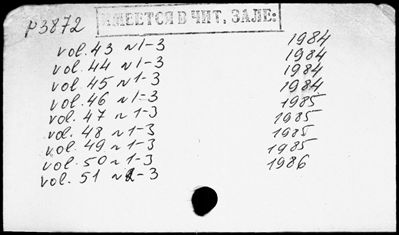 р3872
ИМЕЕТСЯ В ЧИТ, ЗАЛЕ:
vol. 43 N 1-3 1984
vol. 44 N 1-3 1984
vol. 45 N 1-3 1984
vol. 46 N 1-3 1984
vol. 47 N 1-3 1985
vol. 48 N 1-3 1985
vol. 49 N 1-3 1985
vol. 50 N 1-3 1985
vol. 51 N 2-3 1986